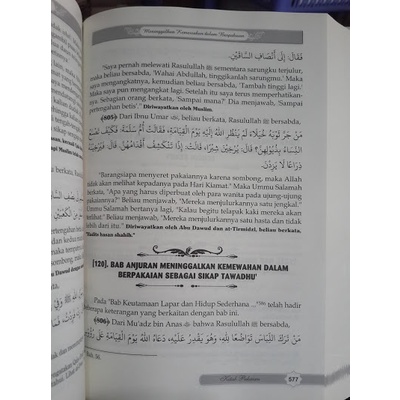 Meninggalkan Kemewahan dalam Berpakaian
فَقَالَ: إِلَى أَنْصَافِ السَّاقَيْنِ.
"Saya pernah melewati Rasulullah ﷺ sementara sarungku terjulur,
maka beliau bersabda, 'Wahai Abdullah, tinggikanlah sarungmu.' Maka
saya pun mengangkatnya. Beliau bersabda, 'Tambah tinggi lagi.'
Maka saya pun mengangkat lagi. Setelah itu saya terus memperhatikannya.
Sebagian orang berkata, 'Sampai mana?' Dia menjawab. 'Sampai
pertengahan betis'." Diriwayatkan oleh Muslim.
﴾805﴿ Dari Ibnu Umar ﷺ, beliau berkata, Rasulullah ﷺ bersabda,
مَنْ جَرَّ ثَوْبَهُ خُيَلَاءَ لَمْ يَنْظُرِ اللّٰهُ إِلَيْهِ يَوْمَ الْقِيَامَةِ، فَقَالَتْ أُمُّ سَلَمَةَ: فَكَيْفَ تَصْنَعُ
النِّسَاءُ بِذُيُوْلِهِنَّ؟ قَالَ: يُرْخِيْنَ شِبْرًا. قَالَتْ: إِذًا تَنْكَشِفُ أَقْدَامُهُنَّ. قَالَ: فَيُرْخِيْنَهُ
ذِرَاعًا لَا يَزِدْنَ.
"Barangsiapa menyeret pakaiannya karena sombong, maka Allah
tidak akan melihat kepadanya pada Hari Kiamat." Maka Ummu Salamah
berkata, "Apa yang harus diperbuat oleh para wanita pada ujung pakaian
mereka?" Beliau menjawab, "Mereka menjulurkannya satu jengkal." Dia
bertanya lagi, "Kalau begitu telapak kaki mereka akan
terlihat?" Beliau menjawab, "Mereka menjulurkannya satu hasta dan tidak
lebih dari itu." Diriwayatkan oleh Abu Dawud dan at-Tirmidzi, beliau berkata,
"Hadits hasan shahih."
[120]. BAB ANJURAN MENINGGALKAN KEMEWAHAN DALAM
BERPAKAIAN SEBAGAI SIKAP TAWADHU'
Pada "Bab Keutamaan Lapar dan Hidup Sederhana ..." telah hadir
beberapa keterangan yang berkaitan dengan bab ini.
﴾806﴿ Dari Mu'adz bin Anas ﷺ bahwa Rasulullah ﷺ bersabda,
مَنْ تَرَكَ اللِّبَاسَ تَوَاضُعًا لِلّٰهِ، وَهُوَ يَقْدِرُ عَلَيْهِ، دَعَاهُ اللّٰهُ يَوْمَ الْقِيَامَةِ عَلَى رُءُوْسِ
Kitab Pakaian
577